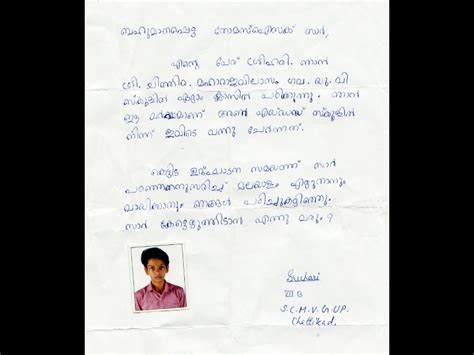 ബഹുമാനപ്പെട്ട തോമസ്ഐസക് സാർ,
എന്റെ പേര് ശ്രീഹരി. ഞാൻ
ശ്രീ. ചിത്തിര. മഹാരാജവിലാസം ഗവ. യു. പി
സ്കൂളിൽ ഏഴാം ക്ലാസിൽ പഠിക്കുന്നു. ഞാൻ
ഈ വർഷമാണ് അൺ എയ്ഡഡ് സ്കൂളിൽ
നിന്ന് ഇവിടെ വന്നു ചേർന്നത്.
കെട്ടിട ഉദ്ഘാടന സമയത്ത് സാർ
പറഞ്ഞതനുസരിച്ച് മലയാളം എഴുതാനും
വായിക്കാനും ഞങ്ങൾ പഠിച്ചുകഴിഞ്ഞു.
സാർ കേട്ടെഴുത്തിടാൻ എന്നു വരും ?
Srihari
VII B
S.C.M.V.G.UP.
Chettikad,